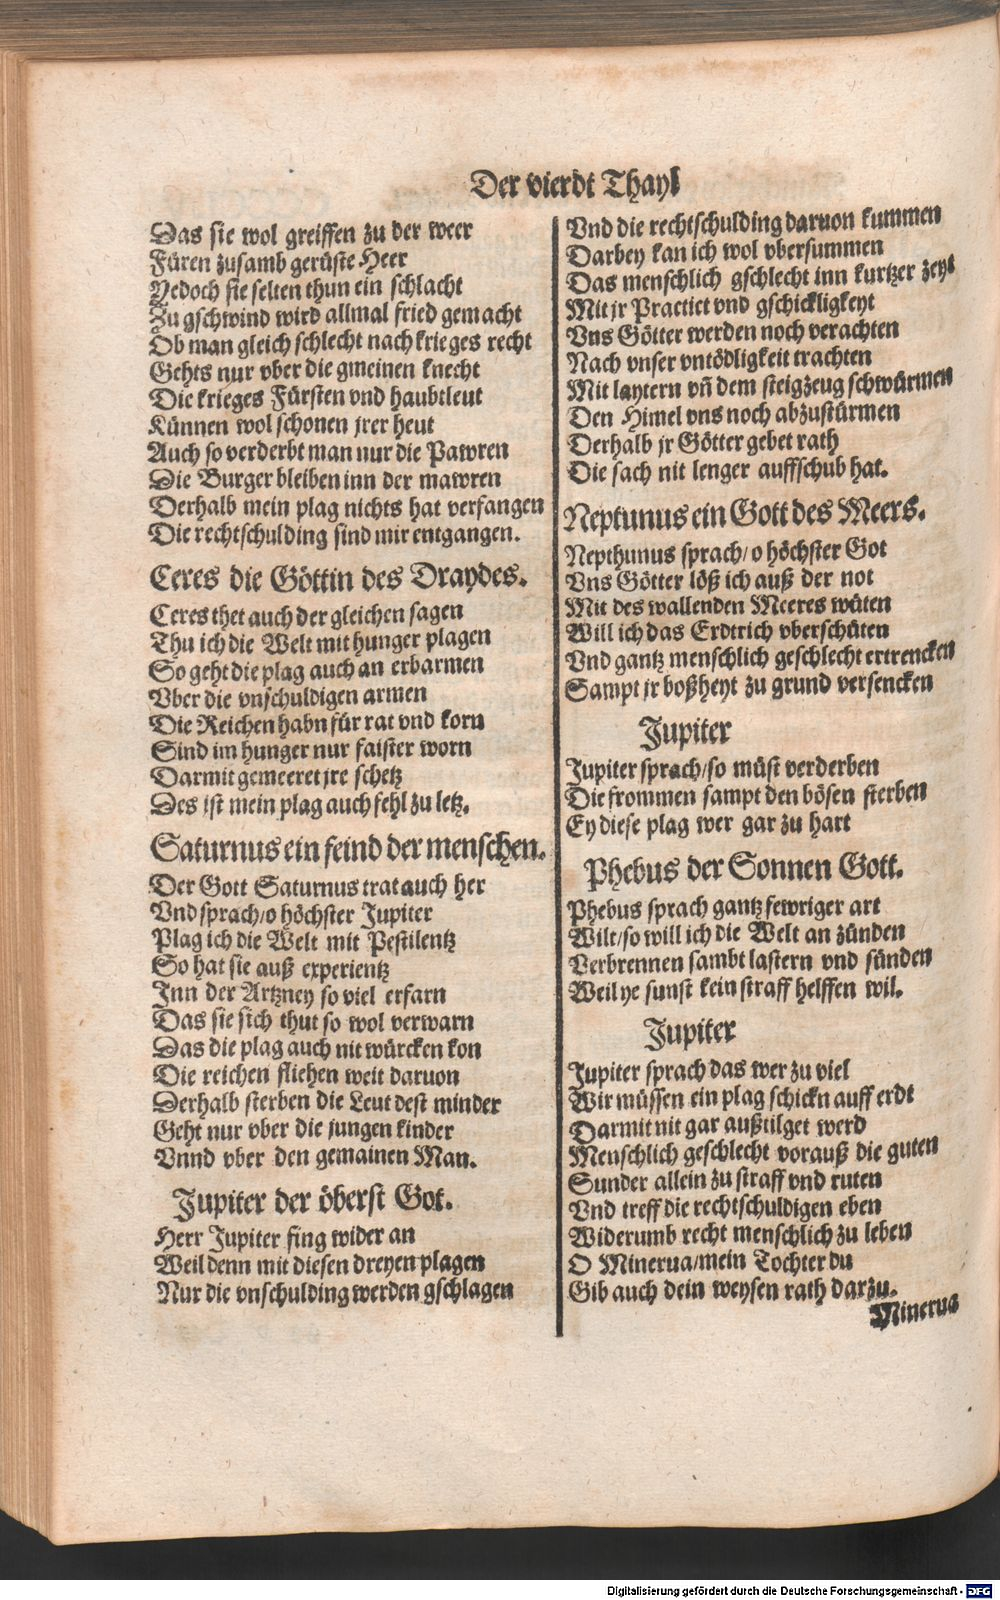 Der vierdt Thayl
Das sie wol greiffen zu der weer
Füren zusamb gerüste Heer
Yedoch sie selten thun ein schlacht
Zu gschwind wird allmal fried gemacht
Ob man gleich schlecht nach krieges recht
Gehts nur vber die gmeinen knecht
Die krieges Fürsten vnd haubtleut
Künnen wol schonen jrer heut
Auch so verderbt man nur die Pawren
Die Burger bleiben inn der mawren
Derhalb mein plag nichts hat verfangen
Die rechtschulding sind mir entgangen.
Ceres die Göttin des Draydes.
Ceres thet auch der gleichen sagen
Thu ich die Welt mit hunger plagen
So geht die plag auch an erbarmen
Vber die vnschuldigen armen
Die Reichen habn für rat vnd korn
Sind im hunger nur faister worn
Darmit gemeeret jre schetz
Des ist mein plag auch fehl zu letz.
Saturnus ein feind der menschen.
Der Gott Saturnus trat auch her
Vnd sprach/o höchster Jupiter
Plag ich die Welt mit Pestilentz
So hat sie auß experientz
Inn der Artzney so viel erfarn
Das sie sich thut so wol verwarn
Das die plag auch nit würcken kon
Die reichen fliehen weit daruon
Derhalb sterben die Leut dest minder
Geht nur vber die jungen kinder
Vnnd vber den gemainen Man.
Jupiter der öberst Got.
Herr Jupiter fing wider an
Weil denn mit diesen dreyen plagen
Nur die vnschulding werden gschlagen
Vnd die rechtschulding daruon kummen
Darbey kan ich wol vbersummen
Das menschlich gschlecht inn kurtzer zeyt
Mit jr Practict vnd gschickligkeyt
Vns Götter werden noch verachten
Nach vnser vntödligkeit trachten
Mit laytern vñ dem steigzeug schwürmen
Den Himel vns noch abzustürmen
Derhalb jr Götter gebet rath
Die sach nit lenger auffschub hat.
Neptunus ein Gott des Meers.
Nepthunus sprach/o höchster Got
Vns Götter löß ich auß der not
Mit des wallenden Meeres wüten
Will ich das Erdtrich vberschüten
Vnd gantz menschlich geschlecht ertrencken
Sampt jr boßheyt zu grund versencken
Jupiter
Jupiter sprach/so müst verderben
Die frommen sampt den bösen sterben
Ey diese plag wer gar zu hart
Phebus der Sonnen Gott.
Phebus sprach gantz fewriger art
Wilt/so will ich die Welt an zünden
Verbrennen sambt lastern vnd sünden
Weil ye sunst kein straff helffen wil.
Jupiter
Jupiter sprach das wer zu viel
Wir müssen ein plag schickn auff erdt
Darmit nit gar außtilget werd
Menschlich geschlecht vorauß die guten
Sunder allein zu straff vnd ruten
Vnd treff die rechtschuldigen eben
Widerumb recht menschlich zu leben
O Minerua/mein Tochter du
Gib auch dein weysen rath darzu.
Minerua
Digitalisierung gefördert durch die Deutsche Forschungsgemeinschaft - DFG